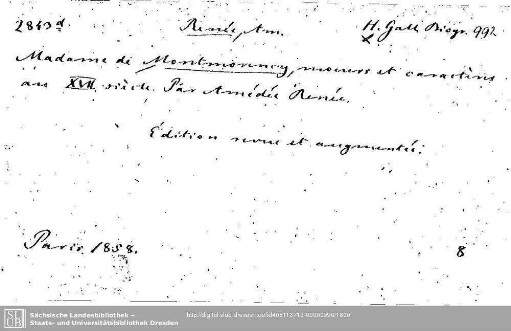 2843d. Renée, Am. H. Gall. Biogr. 992.
Madame de Montmorency, moeurs et caractères
au XVII siècle. Par Amédée Renée.
Édition revue et augmentée.
Paris. 1858. 8
Sächsische Landesbibliothek –
Staats- und Universitätsbibliothek Dresden